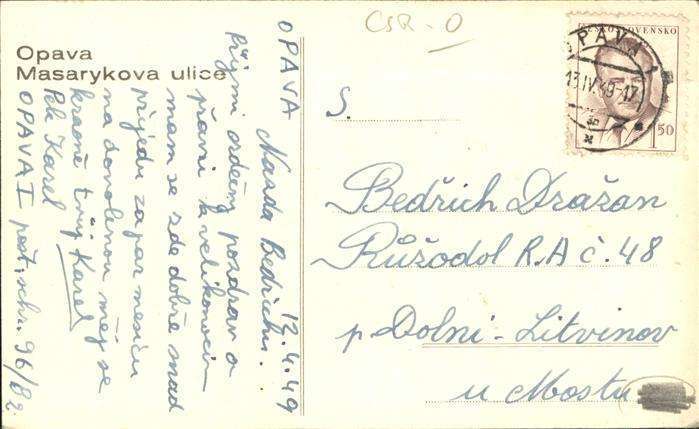 Opava
Masarykova ulice
OPAVA 12.4.49
Nazda Bedřichu.
Přijmi srdečný pozdrav a
přání k velikonocím
mám se zde dobře snad
přijedu za pár měsíců
na dovolenou měj se
krásně tvůj Karel
Petr Karel
OPAVA I pošt. schr. 96/B2
ČSR-O
ČESKOSLOVENSKO
OPAVA
13.IV.49-17
1 50
S.
Bedřich Dražan
Růžodol R.A č. 48
p Dolní-Litvínov
u Mostu